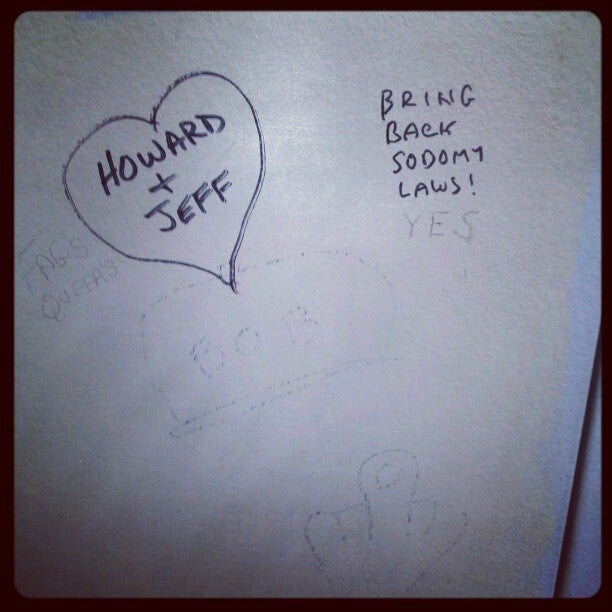 HOWARD
+
JEFF
BRING
BACK
SODOMY
LAWS!
YES
FAGS
QUEERS
BOB